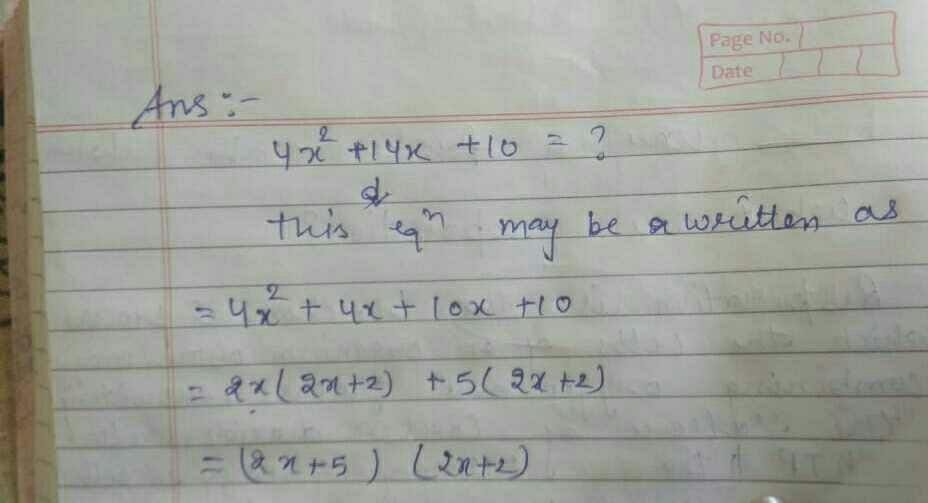 Page No.
Date
Ans :-
4x² + 14x + 10 = ?
this eqⁿ may be written as
= 4x² + 4x + 10x + 10
= 2x(2x+2) + 5(2x+2)
= (2x+5) (2x+2)